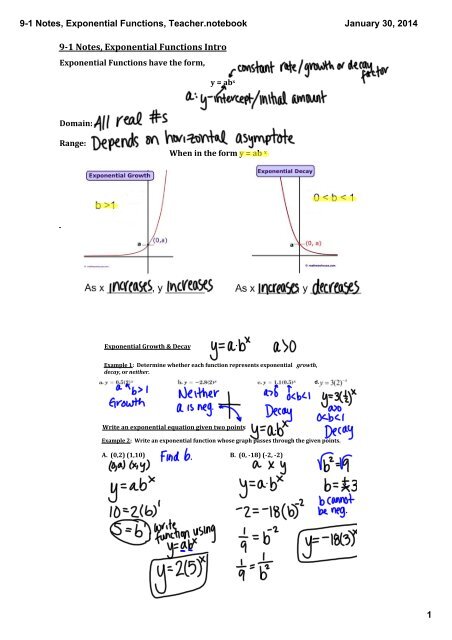 9-1 Notes, Exponential Functions, Teacher.notebook
January 30, 2014
9-1 Notes, Exponential Functions Intro
Exponential Functions have the form,
constant rate/growth or decay factor
y = abˣ
a: y-intercept/initial amount
Domain: All real #s
Range: Depends on horizontal asymptote
When in the form y = abˣ
Exponential Growth
b >1
a (0,a)
Exponential Decay
0 < b < 1
a (0, a)
As x increases, y increases
As x increases y decreases
Exponential Growth & Decay
y=a·bˣ a>0
Example 1: Determine whether each function represents exponential growth,
decay, or neither.
a. y = 0.5(2)ˣ
a b>1
Growth
b. y = −2.8(2)ˣ
Neither
a is neg.
c. y = 1.1(0.5)ˣ
a>0 0<b<1
Decay
d. y = 3(2)⁻ˣ
y=3(½)ˣ
a>0
0<b<1
Decay
Write an exponential equation given two points
y=a·bˣ
Example 2: Write an exponential function whose graph passes through the given points.
A. (0,2) (1,10)
(0,a) (x,y)
Find b.
y=abˣ
10=2(b)¹
5=b¹
Write function using
y=abˣ
y=2(5)ˣ
B. (0, -18) (-2, -2)
a x y
y=a·bˣ
-2=-18(b)⁻²
1/9 = b⁻²
1/9 = 1/b²
√b²=√9
b=±3
b cannot
be neg.
y=-18(3)ˣ
1